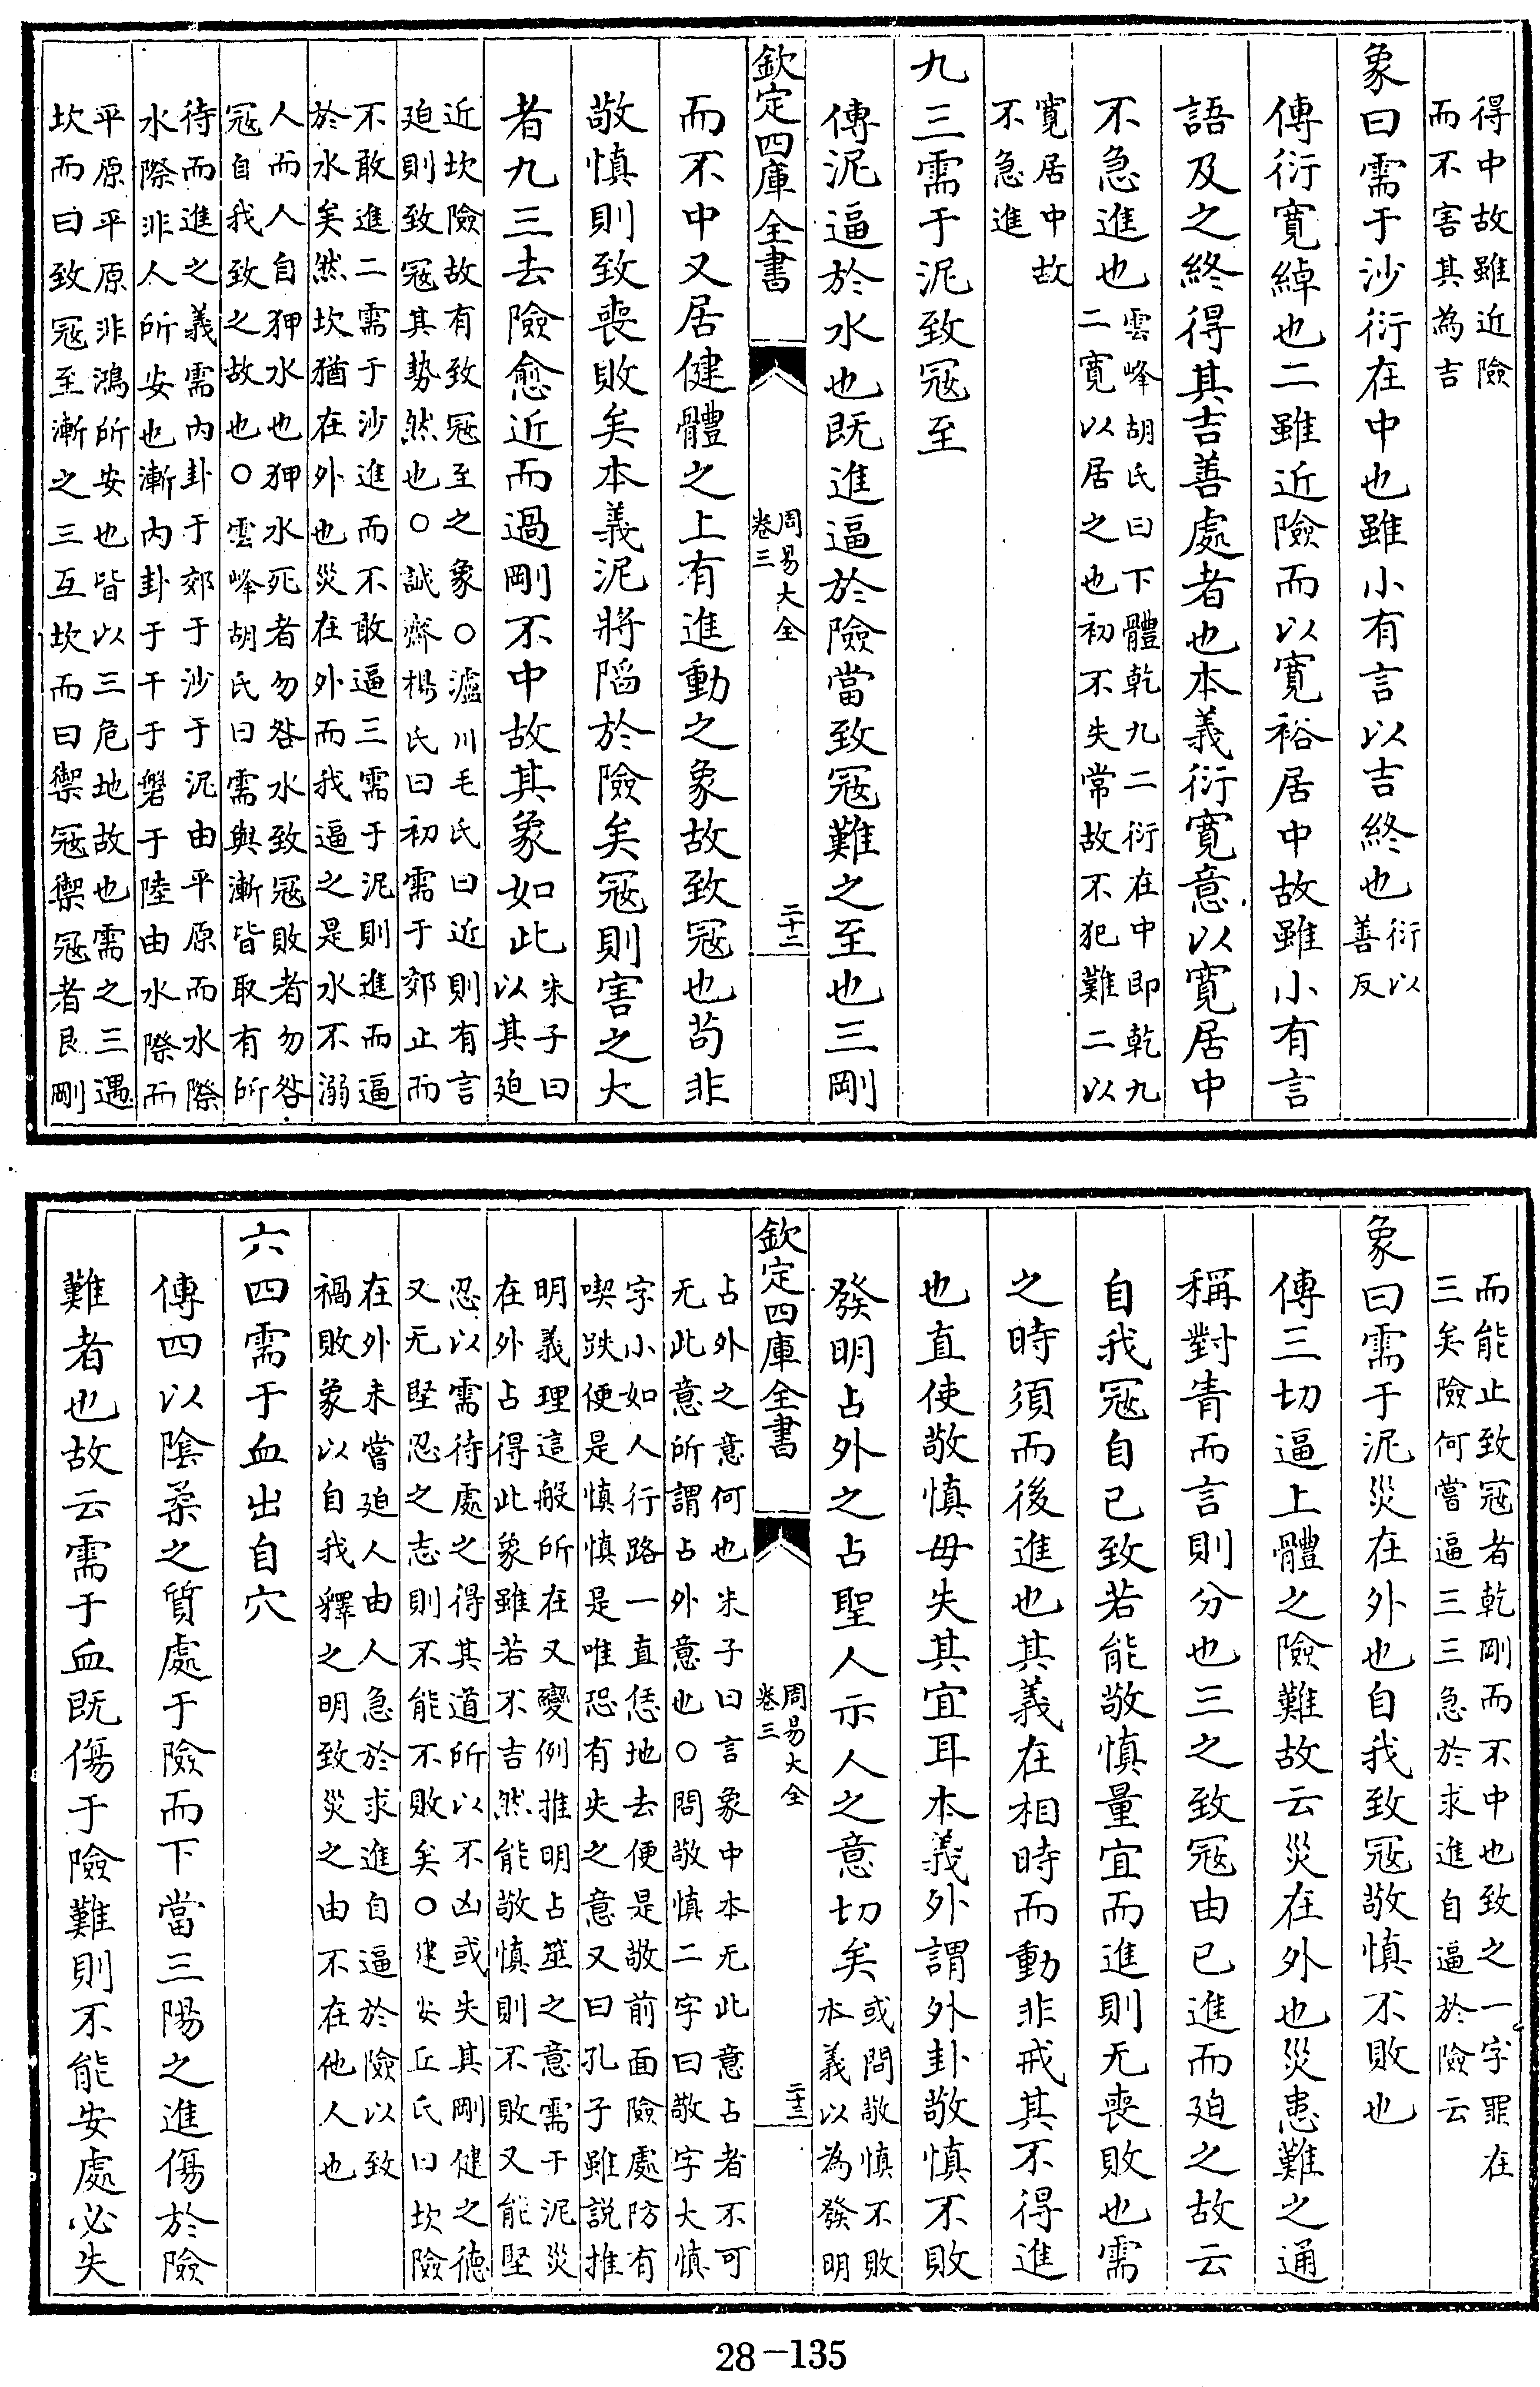 得中故雖近險
而不害其為吉
象曰需于沙衍在中也雖小有言以吉終也衍以
善反
傳衍寛綽也二雖近險而以寛裕居中故雖小有言
語及之終得其吉善處者也本義衍寛意以寛居中
不急進也雲峰胡氏曰下體乾九二衍在中即乾九
二寛以居之也初不失常故不犯難二以
寛居中故
不急進
九三需于泥致冦至
傳泥逼於水也既進逼於險當致冦難之至也三剛
欽定四庫全書
周易大全
卷三
二十二
而不中又居健體之上有進動之象故致冦也苟非
敬慎則致喪敗矣本義泥將陷於險矣冦則害之大
者九三去險愈近而過剛不中故其象如此朱子曰
以其廹
近坎險故有致冦至之象○瀘川毛氏曰近則有言
廹則致冦其勢然也○誠齋楊氏曰初需于郊止而
不敢進二需于沙進而不敢逼三需于泥則進而逼
於水矣然坎猶在外也災在外而我逼之是水不溺
人而人自狎水也狎水死者勿咎水致冦敗者勿咎
冦自我致之故也○雲峰胡氏曰需與漸皆取有所
待而進之義需内卦于郊于沙于泥由平原而水際
水際非人所安也漸内卦于干于磐于陸由水際而
平原平原非鴻所安也皆以三危地故也需之三遇
坎而曰致冦至漸之三互坎而曰禦冦禦冦者艮剛
而能止致冦者乾剛而不中也致之一字罪在
三矣險何嘗逼三三急於求進自逼於險云
象曰需于泥災在外也自我致冦敬慎不敗也
傳三切逼上體之險難故云災在外也災患難之通
稱對眚而言則分也三之致冦由已進而廹之故云
自我冦自已致若能敬慎量宜而進則无喪敗也需
之時須而後進也其義在相時而動非戒其不得進
也直使敬慎毋失其宜耳本義外謂外卦敬慎不敗
發明占外之占聖人示人之意切矣或問敬慎不敗
本義以為發明
欽定四庫全書
周易大全
卷三
二十三
占外之意何也朱子曰言象中本无此意占者不可
无此意所謂占外意也○問敬慎二字曰敬字大慎
字小如人行路一直恁地去便是敬前面險處防有
喫跌便是慎慎是唯恐有失之意又曰孔子雖説推
明義理這般所在又變例推明占筮之意需于泥災
在外占得此象雖若不吉然能敬慎則不敗又能堅
忍以需待處之得其道所以不凶或失其剛健之德
又无堅忍之志則不能不敗矣○建安丘氏曰坎險
在外未嘗廹人由人急於求進自逼於險以致
禍敗象以自我釋之明致災之由不在他人也
六四需于血出自穴
傳四以隂柔之質處于險而下當三陽之進傷於險
難者也故云需于血既傷于險難則不能安處必失
28-135